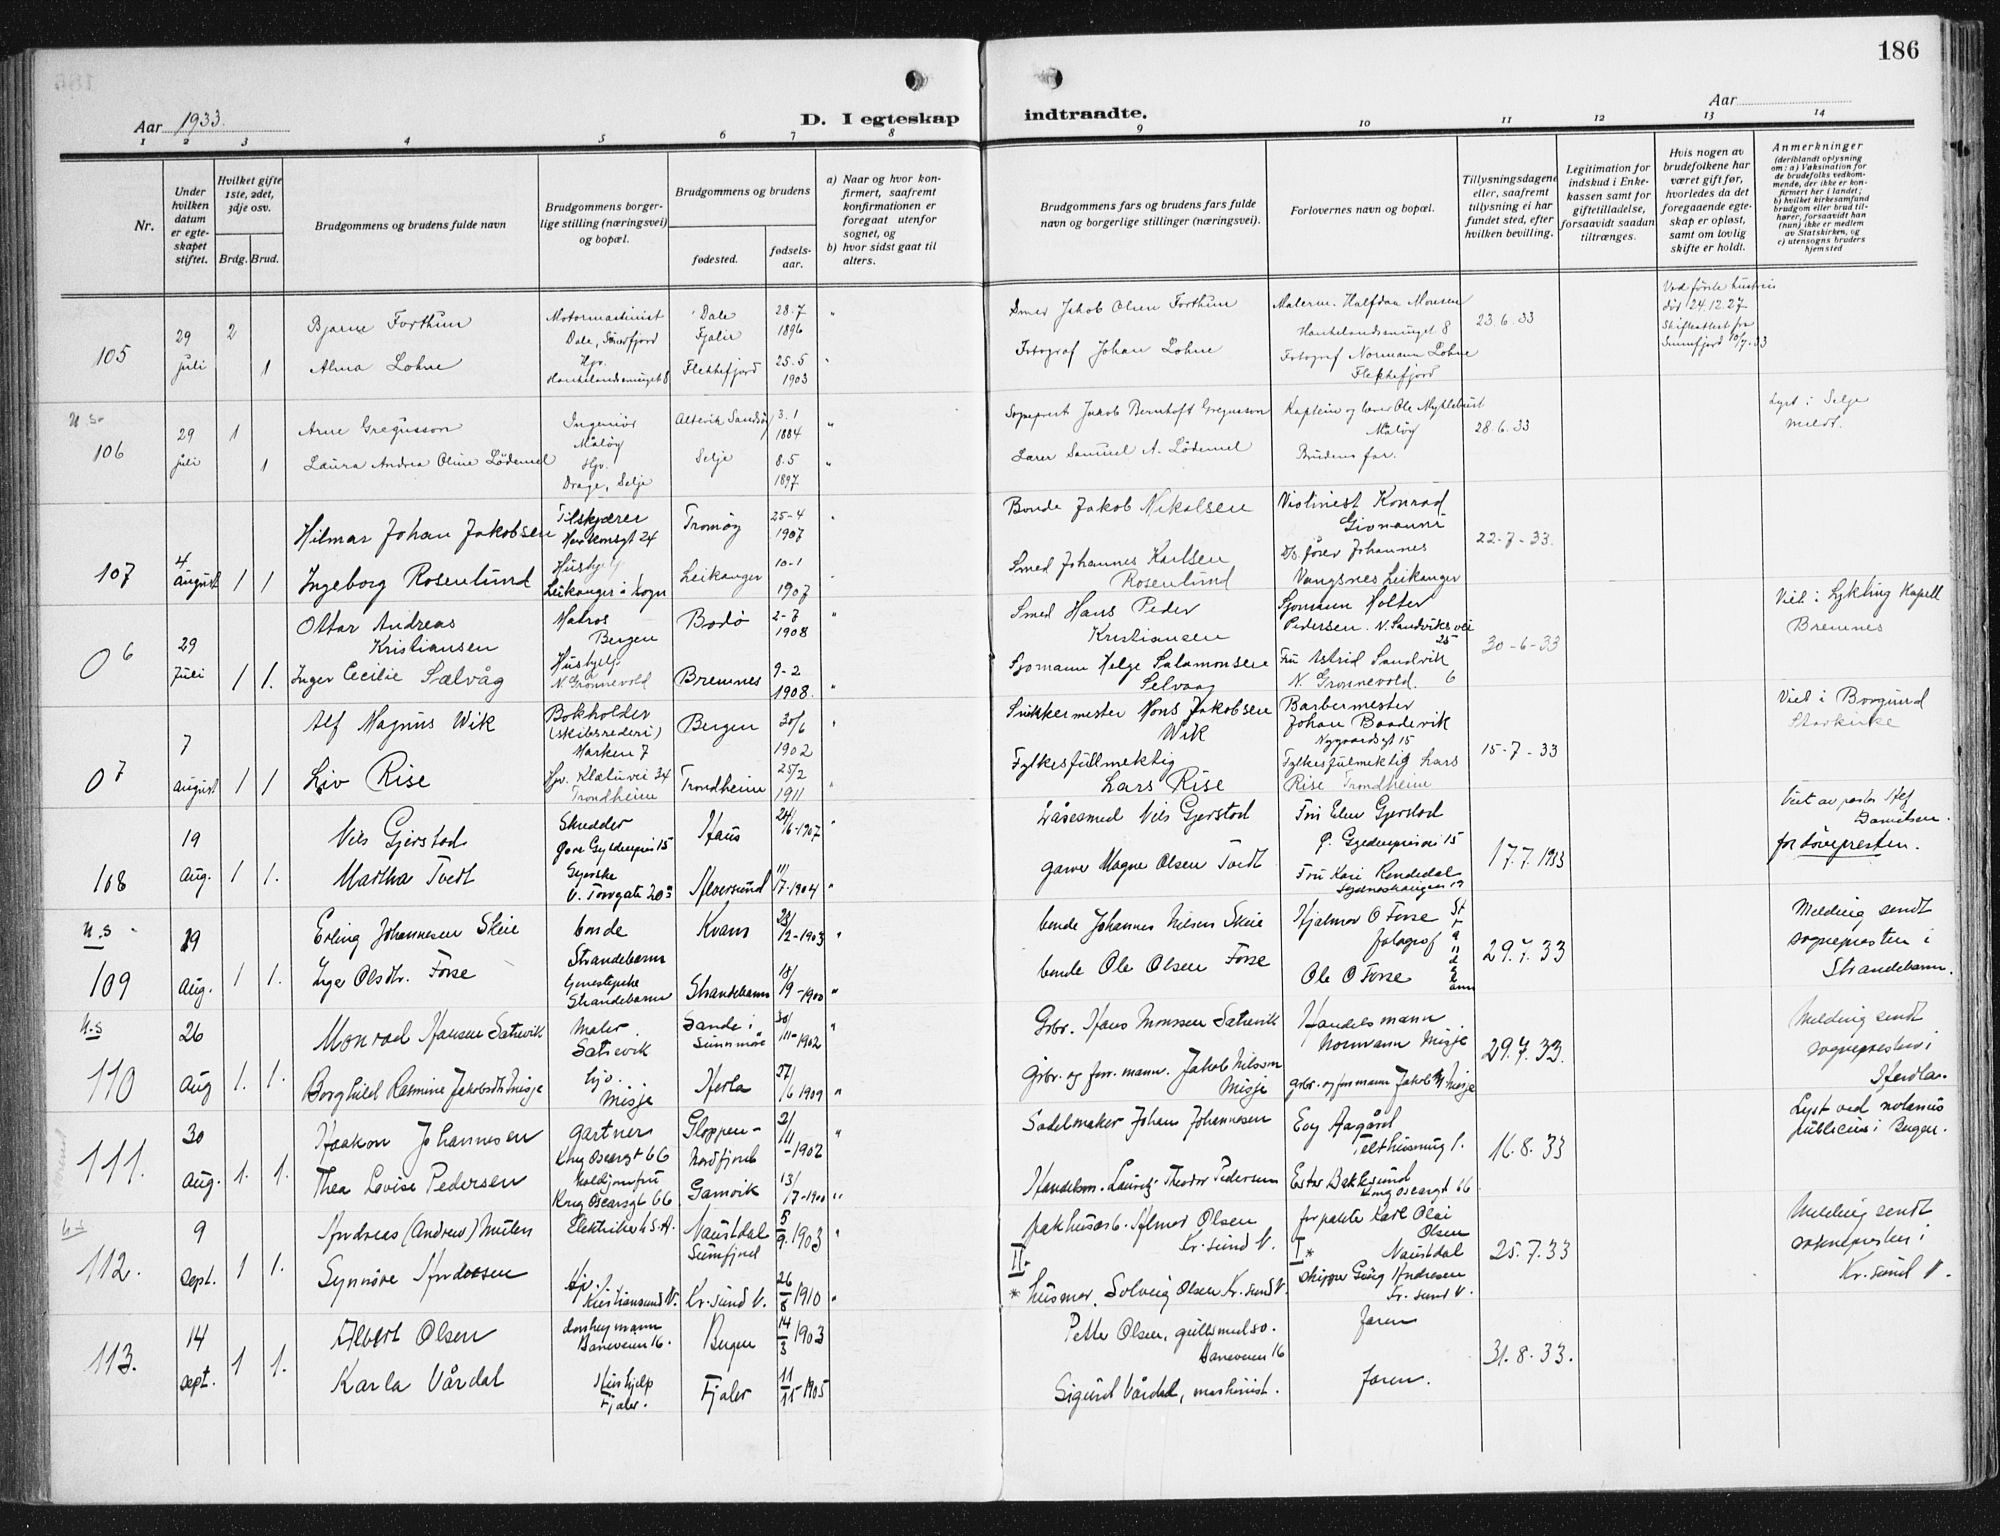 186
Aar 1933.
D. I egteskap indtraadte.
Aar
1 2 3 4 5 6 7 8 9 10 11 12 13 14
Nr.
Under hvilken datum er egteskapet stiftet.
Hvilket gifte 1ste, 2det, 3dje osv.
Brdg. Brud.
Brudgommens og brudens fulde navn
Brudgommens borgerlige stilling (næringsvei) og bopæl.
Brudgommens og brudens
fødested.
fødselsaar.
a) Naar og hvor konfirmert, saafremt konfirmationen er foregaat utenfor sognet, og
b) hvor sidst gaat til alters.
Brudgommens fars og brudens fars fulde navn og borgerlige stillinger (næringsvei).
Forlovernes navn og bopæl.
Tillysningsdagene eller, saafremt tillysning ei har fundet sted, efter hvilken bevilling.
Legitimation for indskud i Enkekassen samt for giftetilladelse, forsaavidt saadan tiltrænges.
Hvis nogen av brudefolkene har været gift før, hvorledes da det foregaaende egteskap er opløst, samt om lovlig skifte er holdt.
Anmerkninger
(deriblandt oplysning om: a) Vaksination for de brudefolks vedkommende, der ikke er konfirmert her i landet; b) hvilket kirkesamfund brudgom eller brud tilhører, forsaavidt han (hun) ikke er medlem av Statskirken, og c) utensogns bruders hjemsted
105
29 juli
2
1
Bjarne Forthun
Motormaskinist
Dale, Sönnfjord
Dale
Fjaler
28.7
1896
Smed Jakob Olsen Forthun
Malerm. Halfdan Monsen
Haukelandssmuget 8
23.6.33
død 24.12.27
Skifteattest fra
Sunnfjord 10/7.33
Alma Lohne
Hjv.
Haukelandssmuget 8
Flekkefjord
25.5
1903
Fotograf Johan Lohne
Fotograf Normann Lohne
Flekkefjord
u s.
106
29 juli
1
1
Arne Gregusson
Ingeniør
Måløy
3.1
1884
Sogneprest Jakob Bernhoft Gregusson
Kaptein og lærer Ole Myklebust
Måløy
28.6.33
Lyst i Selje
meldt.
Laura Andrea Oline Lødemel
Hjv.
Drage, Selje
Selje
8.5
1897
Lærer Samuel A. Lødemel
Brudens far.
107
4 august
1
1
Hilmar Johan Jakobsen
Tilskjærer
Tromøy
25-4
1907
Bonde Jakob Nikolsen
Violinist Konrad
Giovanni
22-7-33.
Ingeborg Rosenlund
Hushjelp
Leikanger i Sogn
Leikanger
10-1
1907
Smed Johannes Karlsen
Rosenlund
Johannes
Vangsnes Leikanger
0 6
29 Juli
1
1.
Ottar Andreas
Kristiansen
Matros
Bergen
Bodö
2-7
1908
Smed Hans Peder
Kristiansen
Sjömann Holter
Pedersen. N. Sandviksvei
25
30-6-33
Viet i Lykling Kapell
Bremnes
Inger Cecilie Sælvåg
Hushjelp
N. Grönnevold
Bremnes
9-2
1908.
Sjömann Helge Salamonsen
Selvaag
Fru Astrid Sandvik
N. Grönnevold. 6
0 7
7 august
1
1
Alf Magnus Wik
Bokholder
(skibsrederi)
Marken 7
Bergen
30/6
1902
Snikkermester Mons Jakobsen
Wik
Barbermester
Johan Baadsvik
Nygaardsgt 15
15-7-33
Viet i Borgund
Liv Rise
Trondheim
Trondheim
25/2
1911
Fylkesfullmektig
Lars Rise
Fylkesfullmektig Lars
Rise Trondheim
108
19 Aug.
1
1.
Nils Gjerstad
Skredder
Haus
24/6-1907
Låsesmed Nils Gjerstad
Fru Elen Gjerstad
17.7.1933
Viet av
Danielsen.
for døvepresten.
Martha Tvedt
Syerske
Alversund
11/7-1904
garver Magne Olsen Tvedt
Fru Kari Rendedal
u.s
109
19 Aug.
1
1.
Erling Johannesen Skeie
bonde
Strandebarm
Kvam
23/12-1903
bonde Johannes Nilsen Skeie
Hjalmar O Fosse
fotograf
29.7.33
Melding sendt
sognepresten i
Strandebarm.
Inga Olsdtr. Fosse
Strandebarm
Strandebarm
18/9-1900
bonde Ole Olsen Fosse
Ole O Fosse
u.s
110
26 Aug
1.
1.
Monrad Hansen Satrevik
Maler
Satrevik
Sande i
Sunnmøre
30/11-1902
Grbr. Hans Monssen Satrevik
Handelsmann
Normann Misje
29.7.33.
Melding sendt
sognepresten i
Herdla.
Borghild Rasmine Jakobsdtr Misje
Hjv.
Misje
Herla
27/6 1909
Grbr. og forr. mann. Jakob Nilsson
Misje
grbr. og forr mann Jakob N Misje
111.
30 Aug.
1.
1.
Haakon Johannesen
gartner
Kong Oscarsgt 66
Gloppen -
Nordfjord
21/11
-1902
Sadelmaker Johan Johannesen
Eoy Aagård
16.8.33
Lyst ved notarius
publicus i Bergen.
Thea Lovise Pedersen
Kong Oscarsgt 66
Gamvik
13/17-1900
Handelsm. Lauritz Theodor Pedersen
Ester Bakksund
Kong Oscarsgt 66
u.s
112.
9 sept.
1
1.
Andreas (Andrew) Mulen
Elektriker U.S.A.
Naustdal
Sunnfjord
5/9 1903
pakhusarb. Almar Olsen
Kr.sund N.
II-
forpakter Karl Olai
Olsen
I* Naustdal
25.7.33
Melding sendt
sognepresten i
Kr. sund N.
Synnøve Andresen
Hjv.
Kristiansund N.
Kr.sund N.
26/8 1910
* husmor. Solveig Olsen Kr. sund N.
skipper Georg Andresen
Kr. sund N.
113.
14 sept.
1
1.
Albert Olsen
Baneveien 16.
Bergen
14/3 1903
Petter Olsen, gullsmedsv.
Baneveien 16
Faren
31.8.33.
Karla Vårdal
Hushjelp
Fjaler.
Fjaler
11/11-1905
Sigurd Vårdal, maskinist.
Faren.